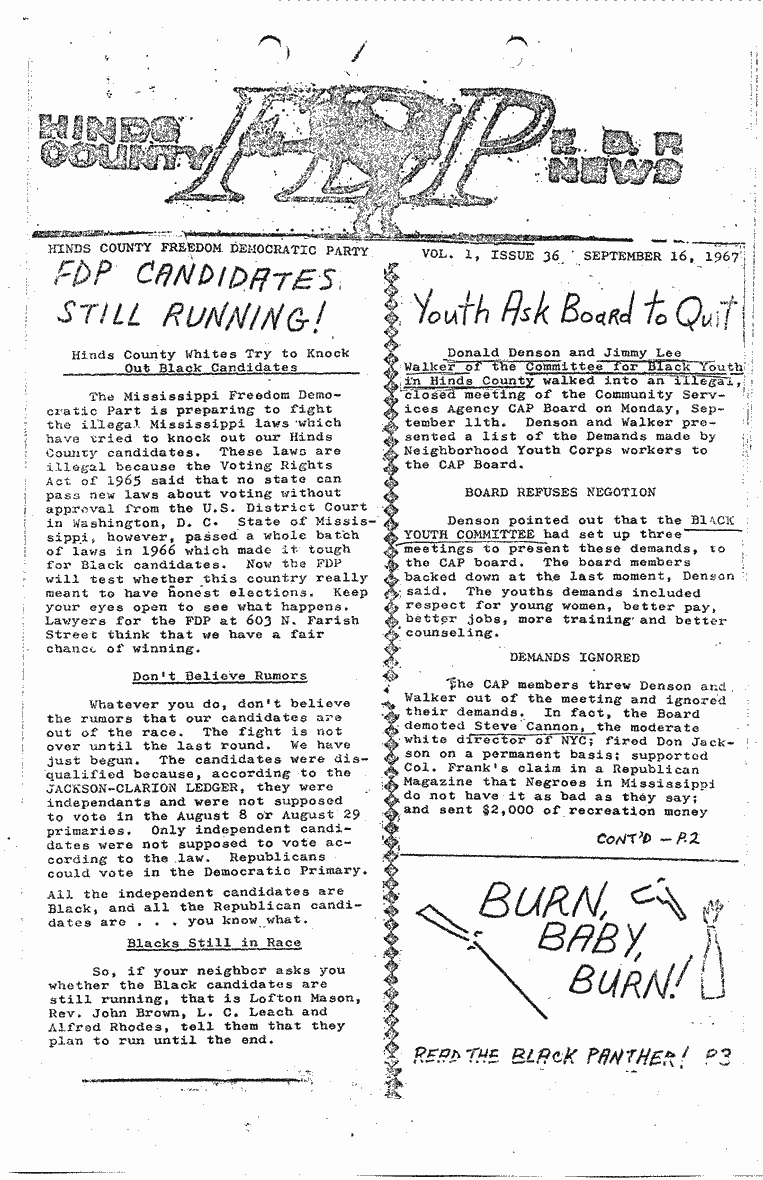 HINDS
COUNTY
FDP
NEWS
HINDS COUNTY FREEDOM DEMOCRATIC PARTY
VOL. 1, ISSUE 36 SEPTEMBER 16, 1967
FDP CANDIDATES
STILL RUNNING!
Hinds County Whites Try to Knock
Out Black Candidates
The Mississippi Freedom Demo-
cratic Part is preparing to fight
the illegal Mississippi laws which
have tried to knock out our Hinds
County candidates. These laws are
illegal because the Voting Rights
Act of 1965 said that no state can
pass new laws about voting without
approval from the U.S. District Court
in Washington, D. C. State of Missis-
sippi, however, passed a whole batch
of laws in 1966 which made it tough
for Black candidates. Now the FDP
will test whether this country really
meant to have honest elections. Keep
your eyes open to see what happens.
Lawyers for the FDP at 603 N. Farish
Street think that we have a fair
chance of winning.
Don't Believe Rumors
Whatever you do, don't believe
the rumors that our candidates are
out of the race. The fight is not
over until the last round. We have
just begun. The candidates were dis-
qualified because, according to the
JACKSON-CLARION LEDGER, they were
independants and were not supposed
to vote in the August 8 or August 29
primaries. Only independent candi-
dates were not supposed to vote ac-
cording to the law. Republicans
could vote in the Democratic Primary.
All the independent candidates are
Black, and all the Republican candi-
dates are . . . you know what.
Blacks Still in Race
So, if your neighbor asks you
whether the Black candidates are
still running, that is Lofton Mason,
Rev. John Brown, L. C. Leach and
Alfred Rhodes, tell them that they
plan to run until the end.
Youth Ask Board to Quit
Donald Denson and Jimmy Lee
Walker of the Committee for Black Youth
in Hinds County walked into an illegal,
closed meeting of the Community Serv-
ices Agency CAP Board on Monday, Sep-
tember 11th. Denson and Walker pre-
sented a list of the Demands made by
Neighborhood Youth Corps workers to
the CAP Board.
BOARD REFUSES NEGOTION
Denson pointed out that the BLACK
YOUTH COMMITTEE had set up three
meetings to present these demands, to
the CAP board. The board members
backed down at the last moment, Denson
said. The youths demands included
respect for young women, better pay,
better jobs, more training and better
counseling.
DEMANDS IGNORED
The CAP members threw Denson and
Walker out of the meeting and ignored
their demands. In fact, the Board
demoted Steve Cannon, the moderate
white director of NYC; fired Don Jack-
son on a permanent basis; supported
Col. Frank's claim in a Republican
Magazine that Negroes in Mississippi
do not have it as bad as they say;
and sent $2,000 of recreation money
CONT'D — P.2
BURN,
BABY,
BURN!
READ THE BLACK PANTHER! P3